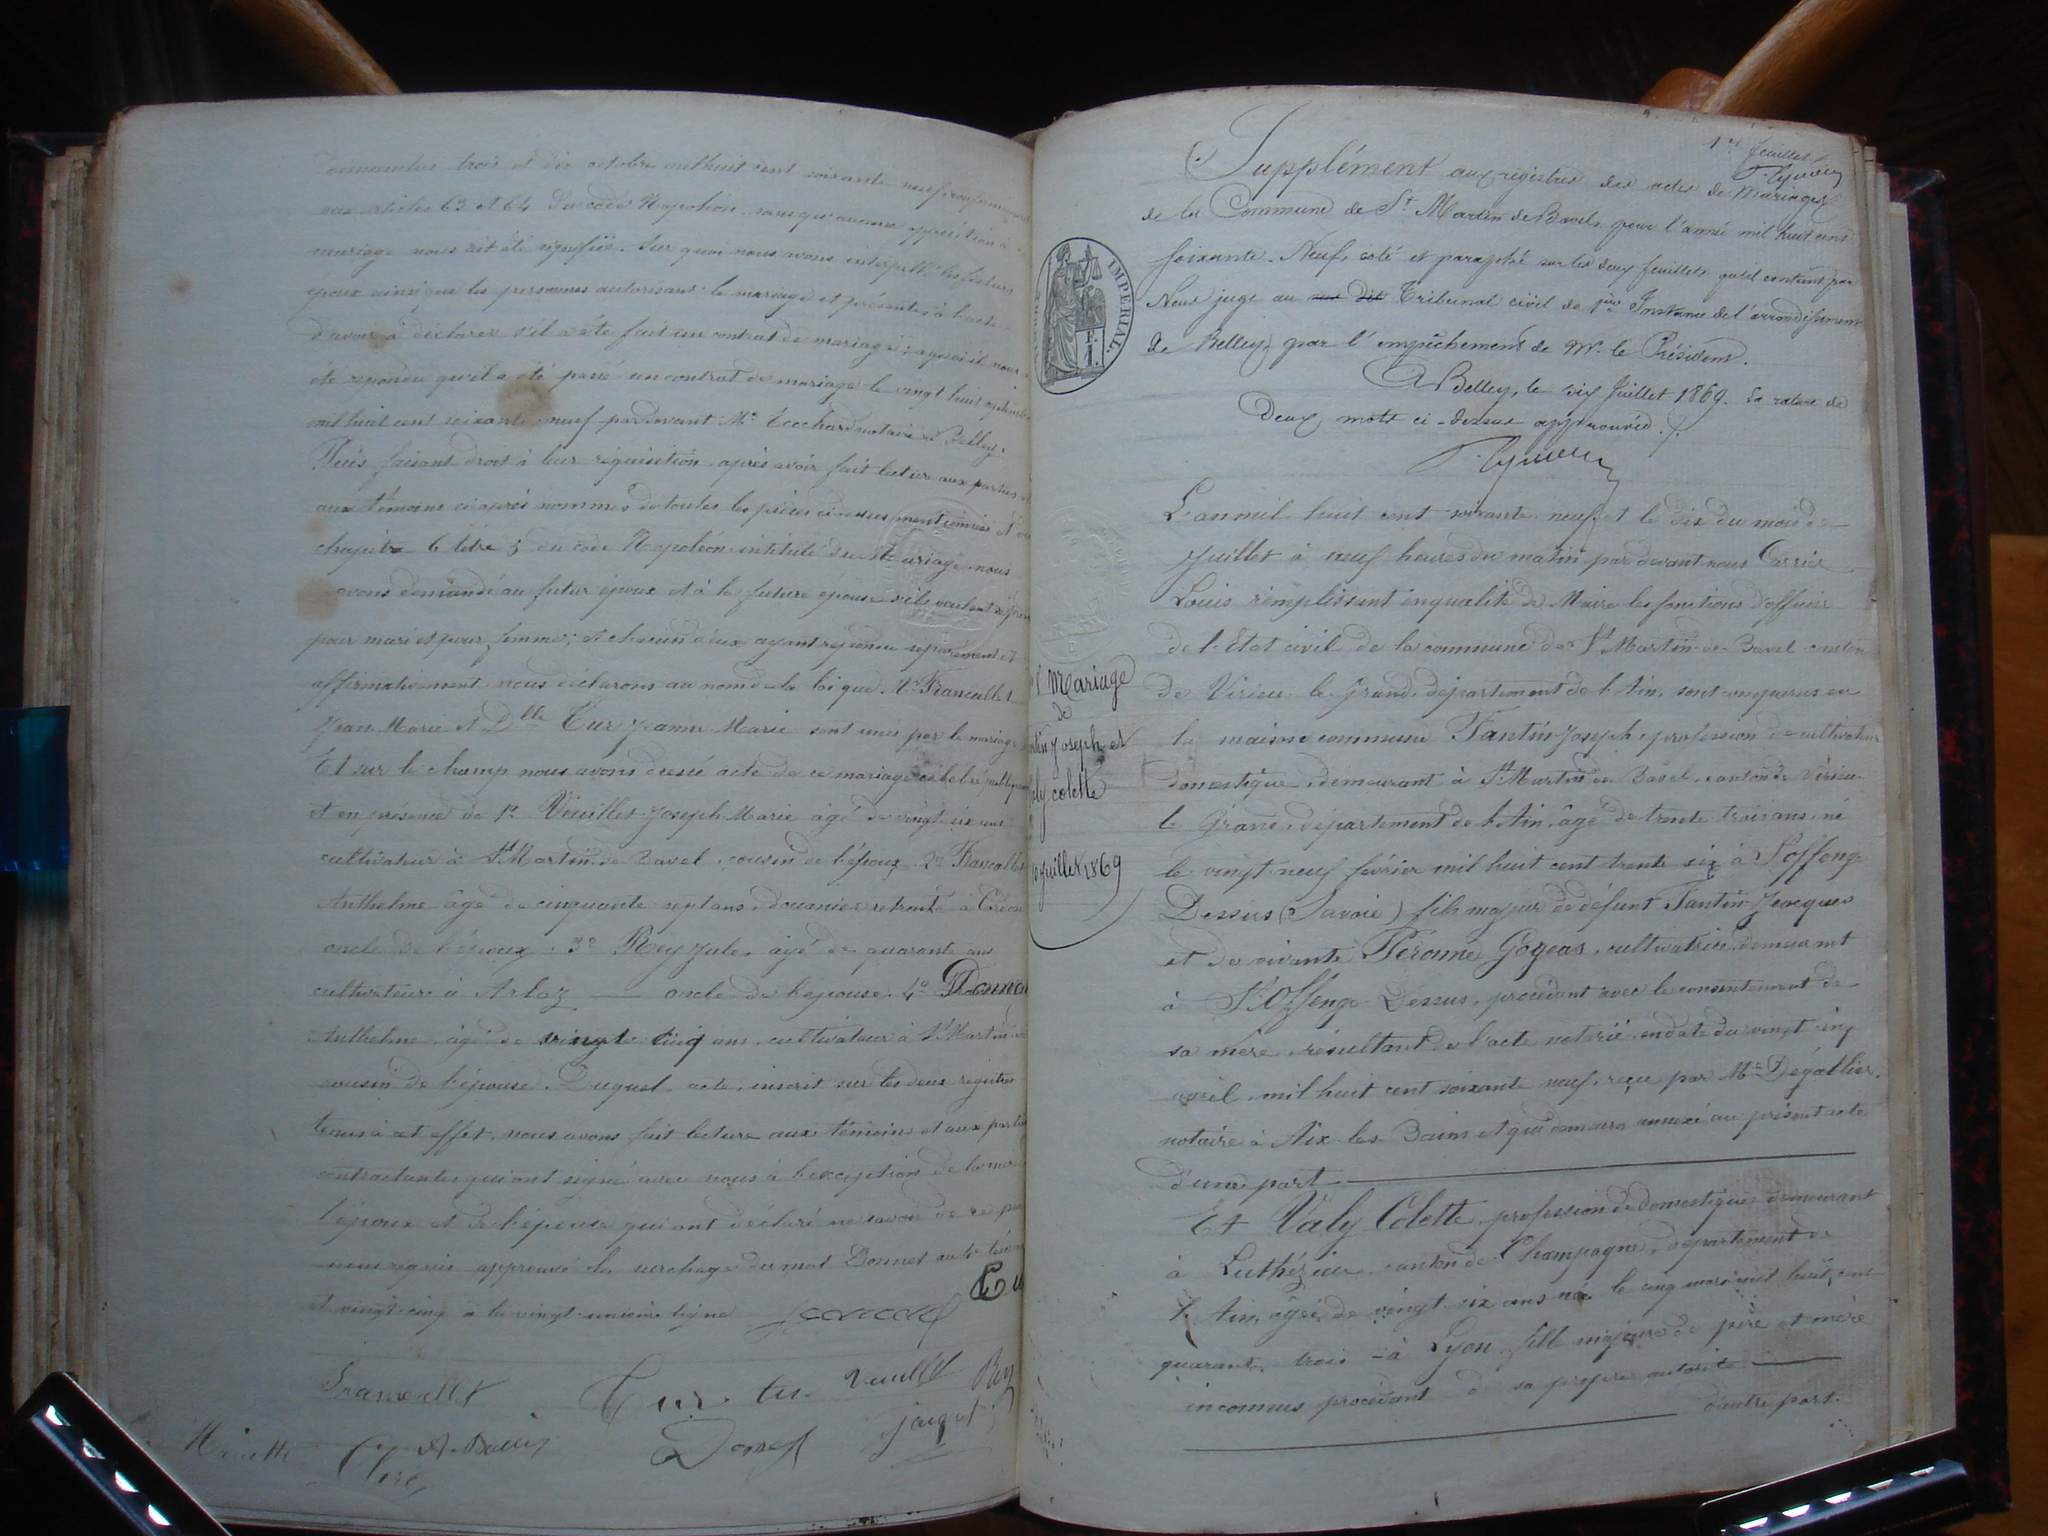 dimanches trois et dix octobre mil huit cent soixante neuf, conformément
aux articles 63 et 64 du code Napoléon, sans qu'aucune opposition à ce
mariage nous ait été signifiée. Sur quoi nous avons interpellé les futurs
époux ainsi que les personnes autorisant le mariage et présentes à l'acte
d'avoir à déclarer s'il a été fait un contrat de mariage; à quoi il nous a
été répondu qu'il a été passé un contrat de mariage le vingt huit septembre
mil huit cent soixante neuf pardevant Me notaire à Belley.
Puis faisant droit à leur réquisition, après avoir fait lecture aux parties et
aux témoins ci après nommés de toutes les pièces ci dessus mentionnées et du
chapitre 6 titre 5 du code Napoléon intitulé du Mariage, nous
avons demandé au futur époux et à la future épouse s'ils veulent se prendre
pour mari et pour femme; et chacun d'eux ayant répondu séparément et
affirmativement nous déclarons au nom de la loi que Mr Francillet
Jean Marie et Dlle Tur Jeanne Marie sont unis par le mariage
Et sur le champ nous avons dressé acte de ce mariage célébré publiquement
et en présence de 1° Veuillet Joseph Marie âgé de vingt six ans
cultivateur à St Martin de Bavel, cousin de l'époux, 2° Francillet
Anthelme âgé de cinquante sept ans, douanier retraité à
oncle de l'époux, 3° Rey Jules, âgé de quarante ans
cultivateur à Arloz — oncle de l'épouse. 4° Donnet
Anthelme âgé de vingt cinq ans, cultivateur à St Martin de
cousin de l'épouse. Duquel acte, inscrit sur les deux registres
tenus à cet effet, nous avons fait lecture aux témoins et aux parties
contractantes qui ont signé avec nous à l'exception de la mère
l'époux et de l'épouse qui ont déclaré ne savoir de ce
approuvé la surcharge du mot Donnet au 4e témoin
et vingt-cinq à la vingt-unième ligne
Tur
Francillet Tur Veuillet Rey
Donnet jacquet
Clerc
1er feuillet
Supplément aux registres des actes de Mariages
de la Commune de St Martin de Bavel, pour l'année mil huit cent
soixante-Neuf, coté et paraphé sur les deux feuillets qu'il contient par
Nous juge au Tribunal civil de 1ère Instance de l'arrondissement
de Belley, par l'empêchement de Mr le Président.
A Belley, le six Juillet 1869. La rature de
Deux mots ci-dessus approuvée.
IMPERIAL.
F.
1.
L'an mil huit cent soixante neuf et le dix du mois de
Juillet à neuf heures du matin par devant nous Carrier
Louis remplissant en qualité de Maire les fonctions d'officier
de l'Etat civil de la commune de St Martin de Bavel canton
de Virieu le Grand, département de l'Ain, sont comparus en
la maison commune Fantin Joseph, profession de cultivateur
domestique, demeurant à St Martin de Bavel, canton de Virieu
le Grand, département de l'Ain, âgé de trente trois ans, né
le vingt neuf février mil huit cent trente six à St Offenge
Dessus (Savoie) fils majeur de défunt Fantin Jacques
et de vivante Péronne Gogeas, cultivatrice, demeurant
à St Offenge Dessus, procédant avec le consentement de
sa mère, résultant de l'acte notarié, en date du vingt cinq
avril, mil huit cent soixante neuf, reçu par Me Dégallier,
notaire à Aix les Bains et qui demeure annexé au présent acte
d'une part
Et Valy Colette, profession de domestique demeurant
à Luthézieu canton de Champagne, département de
l'Ain, âgée de vingt six ans née le cinq mars mil huit cent
quarante trois à Lyon, fille majeure de père et mère
inconnus procédant de sa propre autorité
d'autre part.
Mariage
de
Joseph et
colette
Juillet 1869